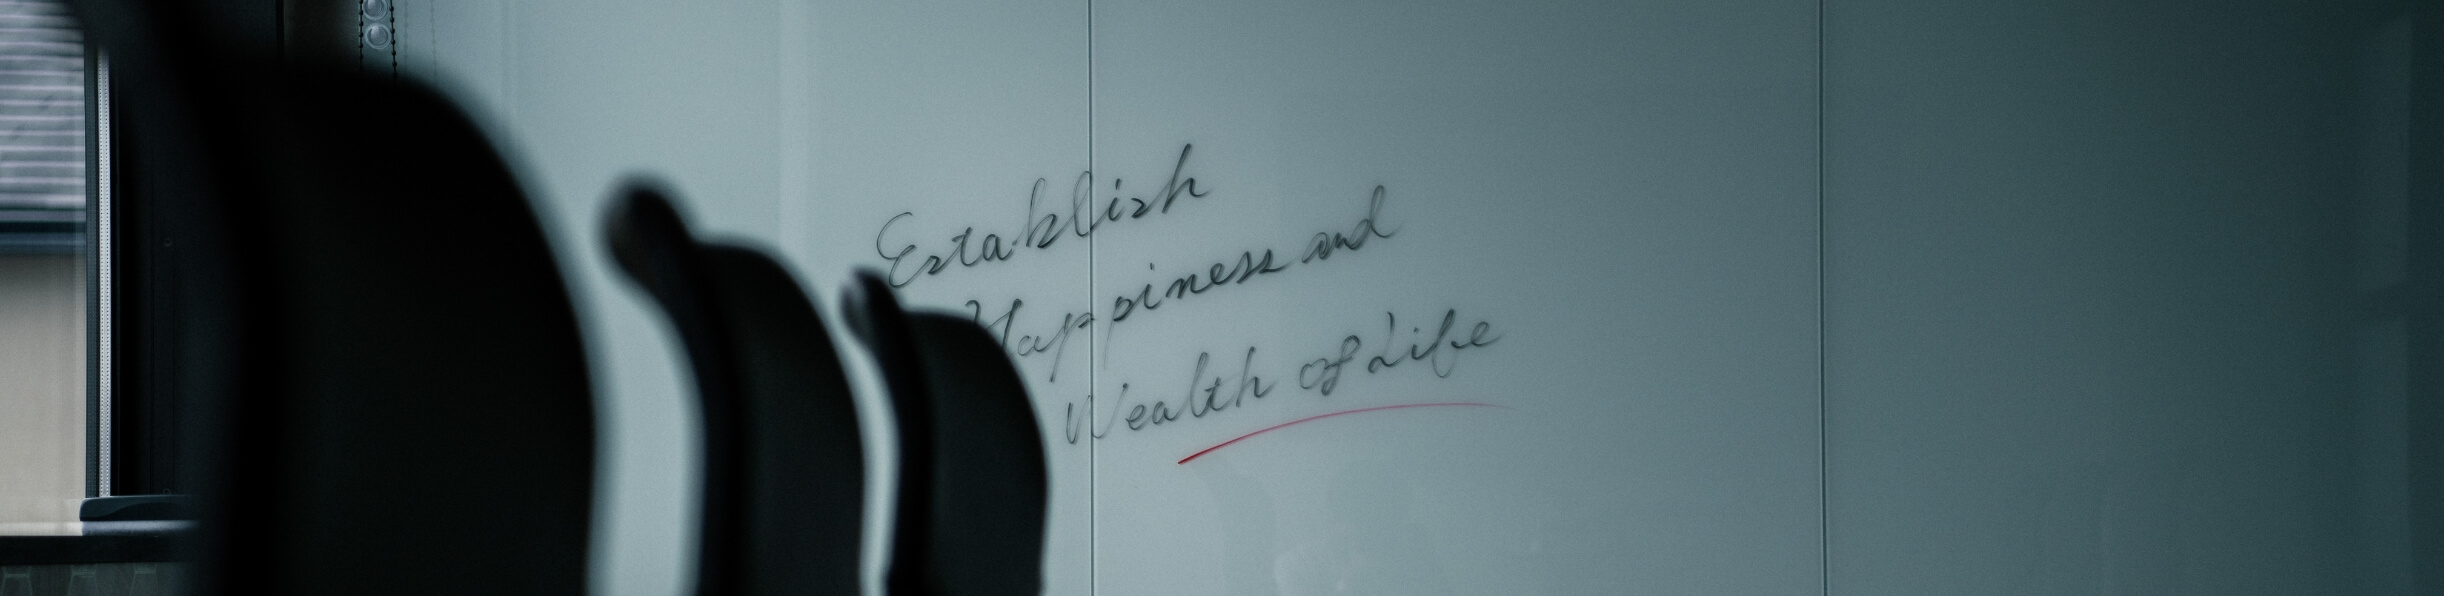 Establish
Happiness and
Wealth of Life